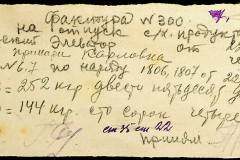 Фактура N 300
на отпуск с/х. продукт
Элеватор от
Карловка
N 6.7 по наряду 1806, 1807 от 22
= 252 кгр. двести пятьдесят д
= 144 кгр. сто сорок четыре
ст 35 ст 22
принял